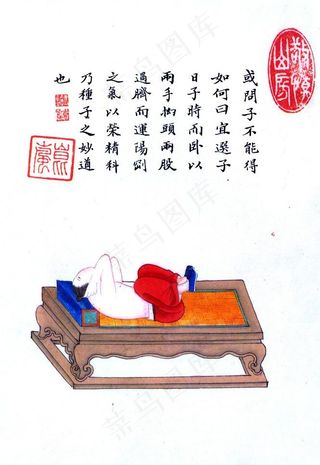 或問子不能得
如何曰宜選子
日子時而卧以
兩手抱頭兩股
過臍而運陽剛
之氣以榮精科
乃種子之妙道
也
敬慎山房
菜鸟图库